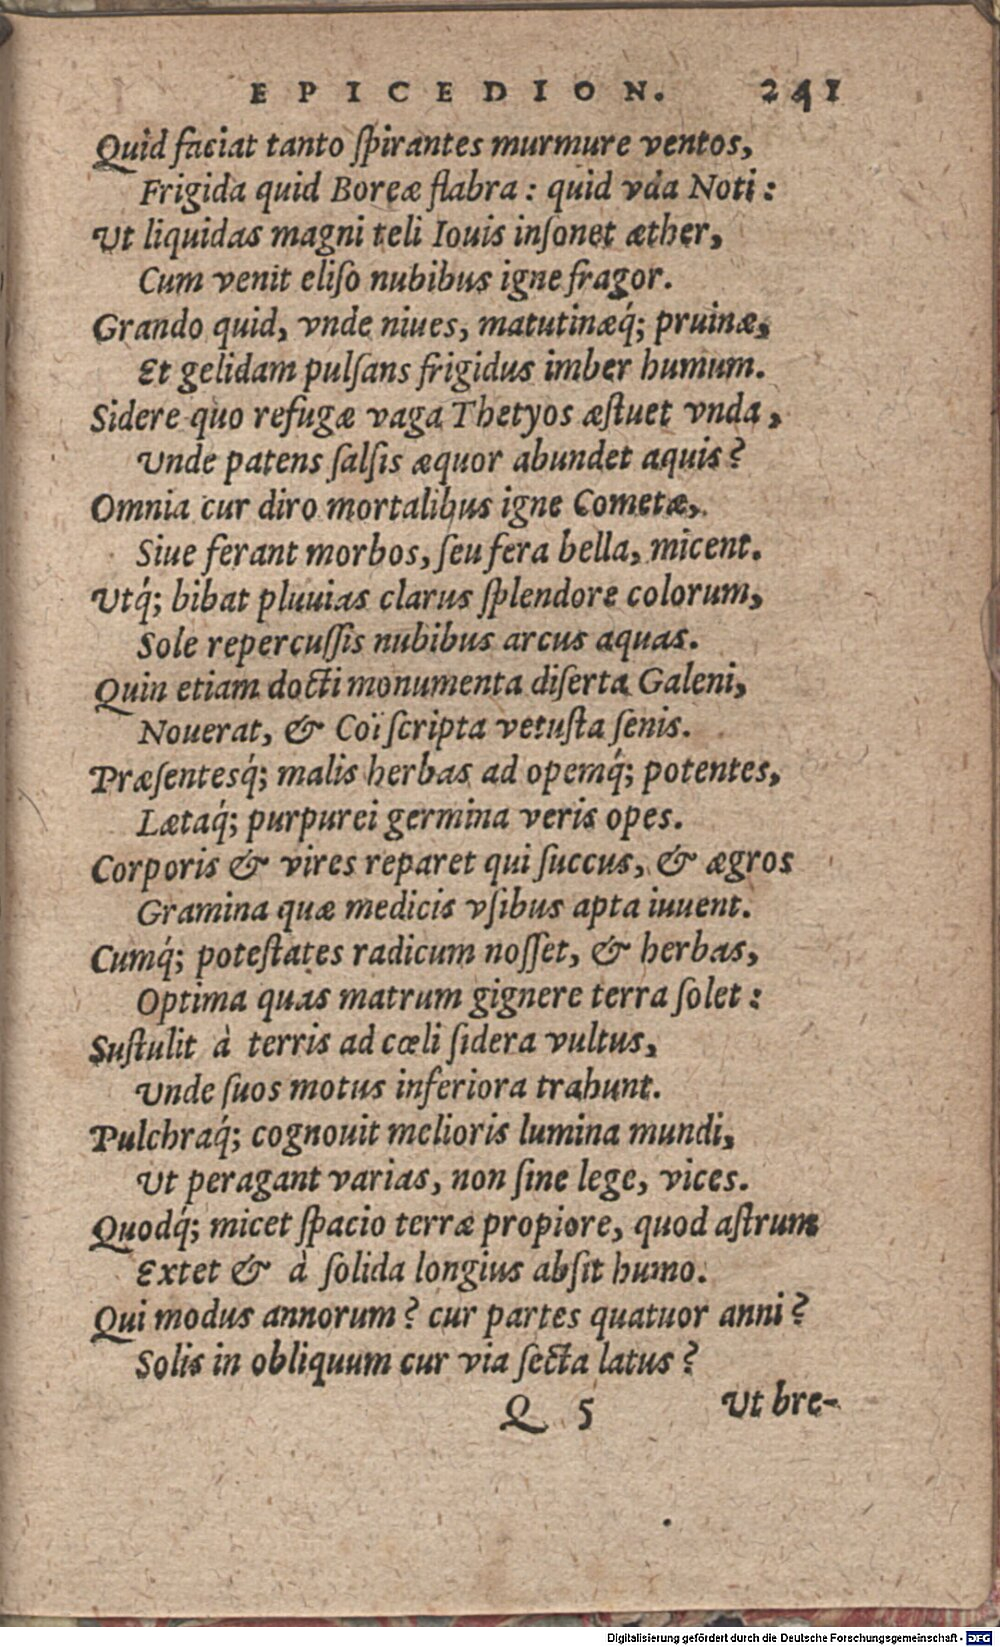 EPICEDION. 241
Quid faciat tanto ſpirantes murmure ventos,
Frigida quid Boreæ flabra : quid vda Noti :
Vt liquidas magni teli Iouis inſonet æther,
Cum venit eliſo nubibus igne fragor.
Grando quid, vnde niues, matutinæq́; pruinæ,
Et gelidam pulſans frigidus imber humum.
Sidere quo refugæ vaga Thetyos æſtuet vnda,
Vnde patens ſalſis æquor abundet aquis?
Omnia cur diro mortalibus igne Cometæ,
Siue ferant morbos, ſeu fera bella, micent.
Vtq́; bibat pluuias clarus ſplendore colorum,
Sole repercuſſis nubibus arcus aquas.
Quin etiam docti monumenta diſerta Galeni,
Nouerat, & Coï ſcripta vetuſta ſenis.
Præſentesq́; malis herbas ad opemq́; potentes,
Lætaq́; purpurei germina veris opes.
Corporis & vires reparet qui ſuccus, & ægros
Gramina quæ medicis vſibus apta iuuent.
Cumq́; poteſtates radicum noſſet, & herbas,
Optima quas matrum gignere terra ſolet :
Suſtulit à terris ad cœli ſidera vultus,
Vnde ſuos motus inferiora trahunt.
Pulchraq́; cognouit melioris lumina mundi,
Vt peragant varias, non ſine lege, vices.
Quodq́; micet ſpacio terræ propiore, quod aſtrum
Extet & à ſolida longius abſit humo.
Qui modus annorum? cur partes quatuor anni?
Solis in obliquum cur via ſecta latus?
Q 5 Vt bre-
Digitalisierung gefördert durch die Deutsche Forschungsgemeinschaft - DFG